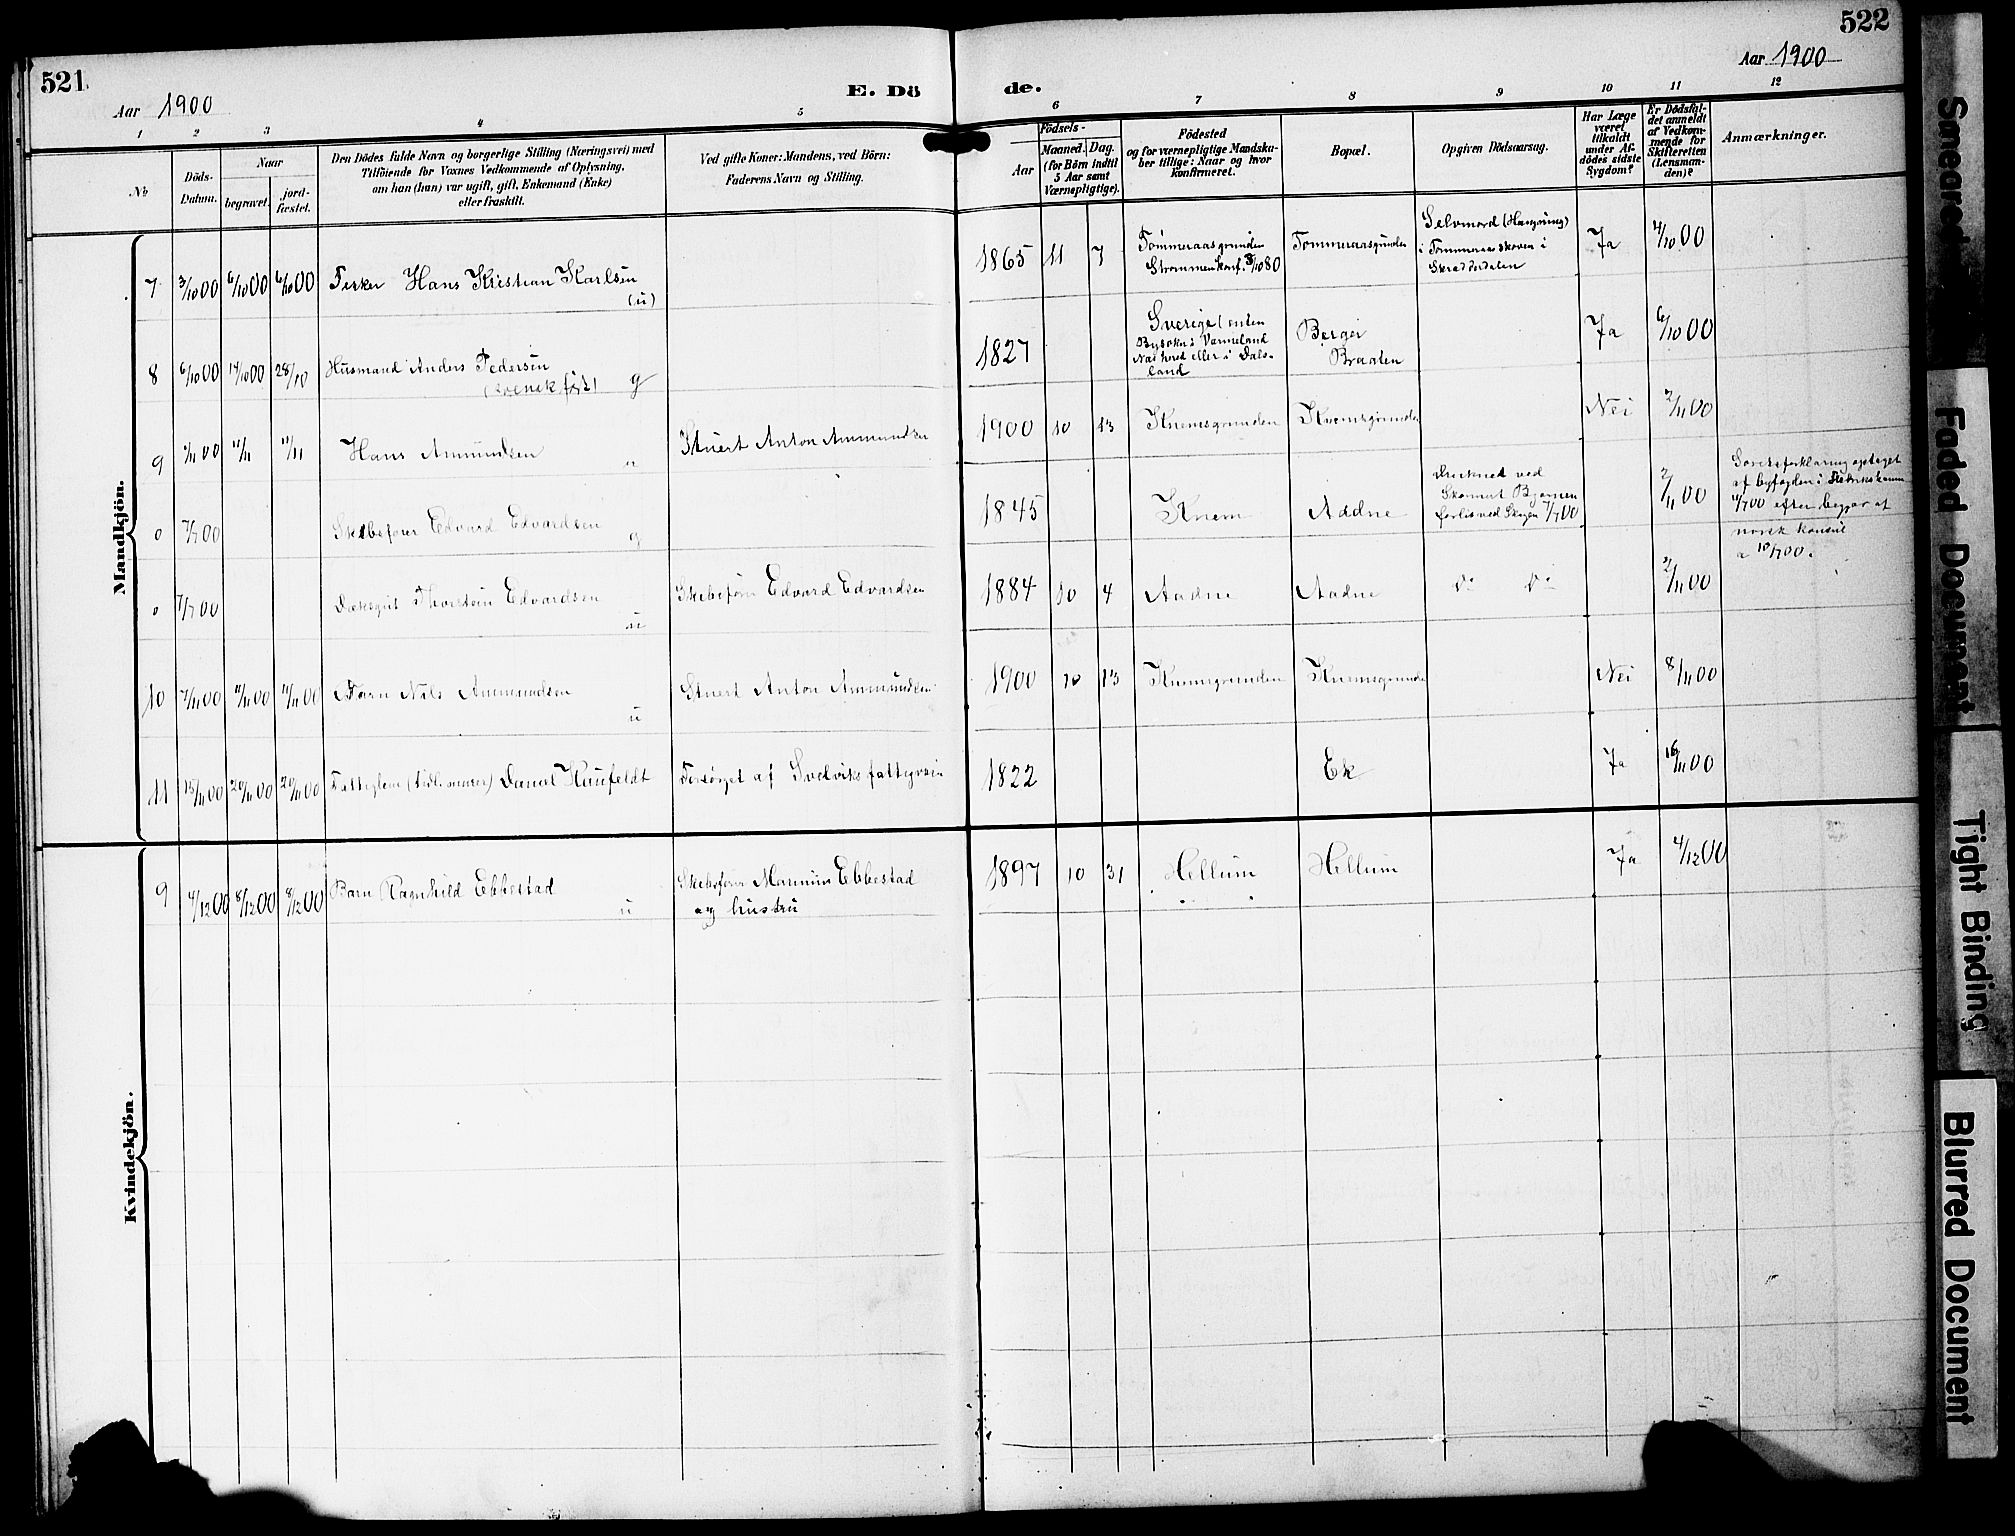 521
522
Aar 1900
Aar 1900
E. Dö
de.
1 2 3 4 5
6 7 8 9 10 11 12
No
Döds-
Datum.
Naar
begravet.
jord-
fæstet.
Den Dödes fulde Navn og borgerlige Stilling (Næringsvei) med
Tilföiende for Voxnes Vedkommende af Oplysning,
om han (hun) var ugift, gift, Enkemand (Enke)
eller fraskilt.
Ved gifte Koner: Mandens, ved Börn:
Faderens Navn og Stilling.
Födsels-
Aar
Maaned. Dag.
(for Börn indtil
5 Aar samt
Værnepligtige).
Födested
og for værnepligtige Mandska-
ber tillige: Naar og hvor
konfirmeret.
Bopæl.
Opgiven Dödsaarsag.
Har Læge
været
tilkaldt
under Af-
dödes sidste
Sygdom?
Er Dödsfal-
det anmeldt
af Vedkom-
mende for
Skifteretten
(Lensman-
den)?
Anmærkninger.
Mandkjön.
7 3/10 00 6/10 00 6/10 00 Fisker Hans Kristian Karlsen
(u)
1865 11 7 Tømmeraasgrunden
Strømmen konf. 3/10 80
Tømmeraasgrunden
Selvmord (Hængning)
i Tømmeraasskoven i
Skrædderdalen
Ja 4/10 00
8 6/10 00 14/10 00 28/10 Husmand Anders Pedersen
(svensk født) g
1827
Sverige (enten
Bysokn i Vermeland
Næs hred eller i Dals-
land
Berger
Braaten
Ja 6/10 00
9 2/11 00 11/11 11/11 Hans Ammundsen
u
Stuert Anton Ammundsen
1900 10 13 Knemsgrunden Knemsgrunden Nei 2/11 00
0 7/7 00 Skibsfører Edvard Edvardsen
g
1845 Knem Aadne
Druknet ved
Skonnert Bjørnen
forlis ved Skagen 7/7 00
2/11 00
Søreksforklaring optaget
af byfogden i Frederikshavn
11/7 00 efter begjær af
norsk konsul
10/7 00.
0 7/7 00 Dæksgut Thorstein Edvardsen
u
Skibsfører Edvard Edvardsen
1884 10 4 Aadne Aadne Do Do 2/11 00
10 7/11 00 11/11 00 11/11 00 Barn Nils Ammundsen
u
Stuert Anton Ammundsen
1900 10 13 Knemsgrunden Knemsgrunden Nei 8/11 00
11 15/11 00 20/11 00 20/11 00 Fattiglem Daniel Kaufeldt
Forsørget af Svelviks fattigvæsen
1822 Ek Ja 16/11 00
Kvindekjön.
9 4/12 00 8/12 00 8/12 00 Barn Ragnhild Ebbestad
u
Skibsfører Marinius Ebbestad
og hustru
1897 10 31 Hellum Hellum Ja 4/12 00
Smeared
Faded Document
Tight Binding
Blurred Document